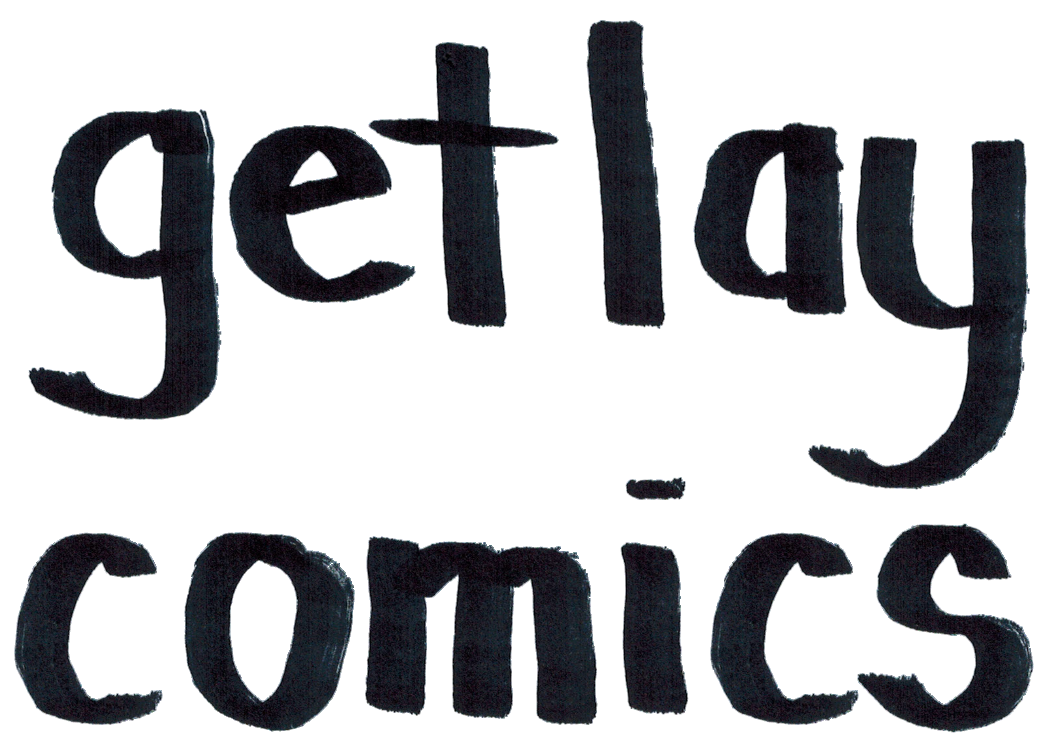 get lay
comics